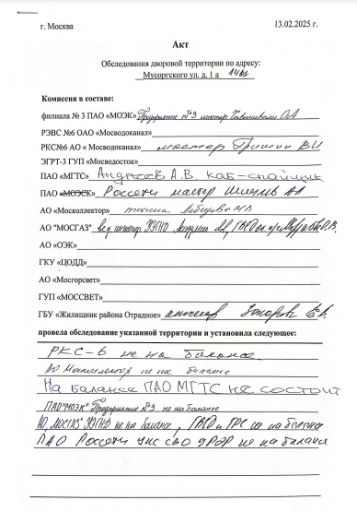 г. Москва 13.02.2025 г.
Акт
Обследования дворовой территории по адресу:
Мусоргского ул. д. 1 а
Комиссия в составе:
филиала № 3 ПАО «МОЭК» Предприятие №3 мастер
РЭВС №6 ОАО «Мосводоканал»
РКС№6 АО «Мосводоканал» мастер Гришин В.И
ЭГРТ-3 ГУП «Мосводосток»
ПАО «МГТС» Андреев А.В. каб-спайщик
ПАО «МОЭСК» Россети мастер
АО «Москоллектор» техник
АО "МОСГАЗ" вед инженер УЭГХО
АО «ОЭК»
ГКУ «ЦОДД»
АО «Мосгорсвет»
ГУП «МОССВЕТ»
ГБУ «Жилищник района Отрадное» инженер Е.В.
провела обследование указанной территории и установила следующее:
РКС-6 не на балансе
АО Москоллектор не на балансе
На балансе ПАО МГТС не состоит
ПАО "МОЭК" Предприятие №3 не на балансе
АО "МОСГАЗ" УЭГХО не на балансе, не на балансе
ПАО Россети не на балансе